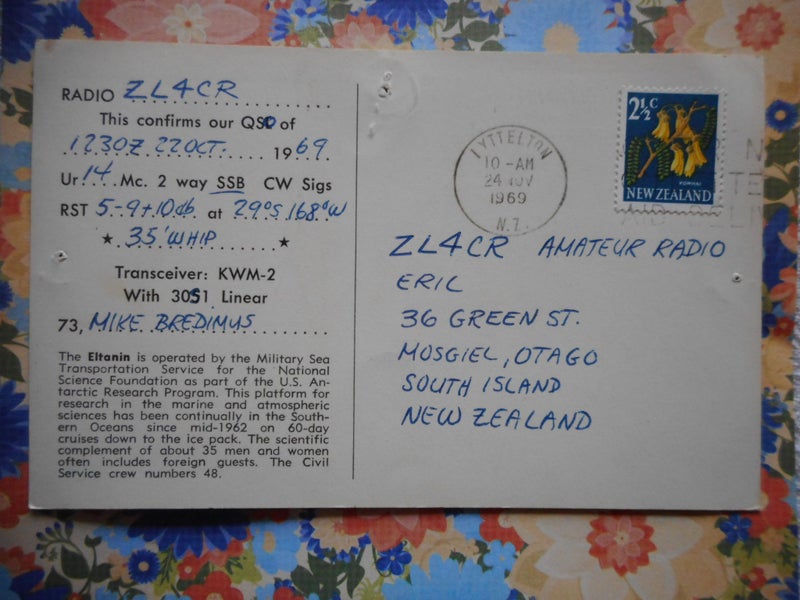 RADIO ZL4CR
This confirms our QSO of
1230Z 22 OCT. 1969
Ur 14 Mc. 2 way SSB CW Sigs
RST 5-9+10db. at 29°S 168°W
★ 35' WHIP ★
Transceiver: KWM-2
With 30S1 Linear
73, MIKE BREDIMUS
The Eltanin is operated by the Military Sea
Transportation Service for the National
Science Foundation as part of the U.S. An-
tarctic Research Program. This platform for
research in the marine and atmospheric
sciences has been continually in the South-
ern Oceans since mid-1962 on 60-day
cruises down to the ice pack. The scientific
complement of about 35 men and women
often includes foreign guests. The Civil
Service crew numbers 48.
LYTTELTON
10-AM
24 NOV
1969
N.Z.
2½c
KOWHAI
NEW ZEALAND
ZL4CR AMATEUR RADIO
ERIC
36 GREEN ST.
MOSGIEL, OTAGO
SOUTH ISLAND
NEW ZEALAND